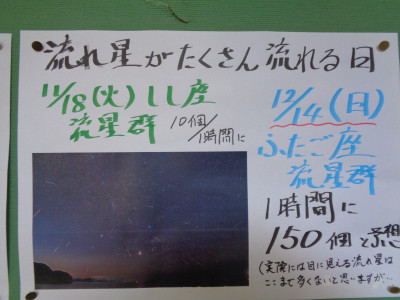 流れ星がたくさん流れる日
11/18(火)しし座
流星群 10個/1時間に
12/14(日)
ふたご座
流星群
1時間に
150個と予想
(実際には目に見える流れ星は
ここまで多くないと思いますが…